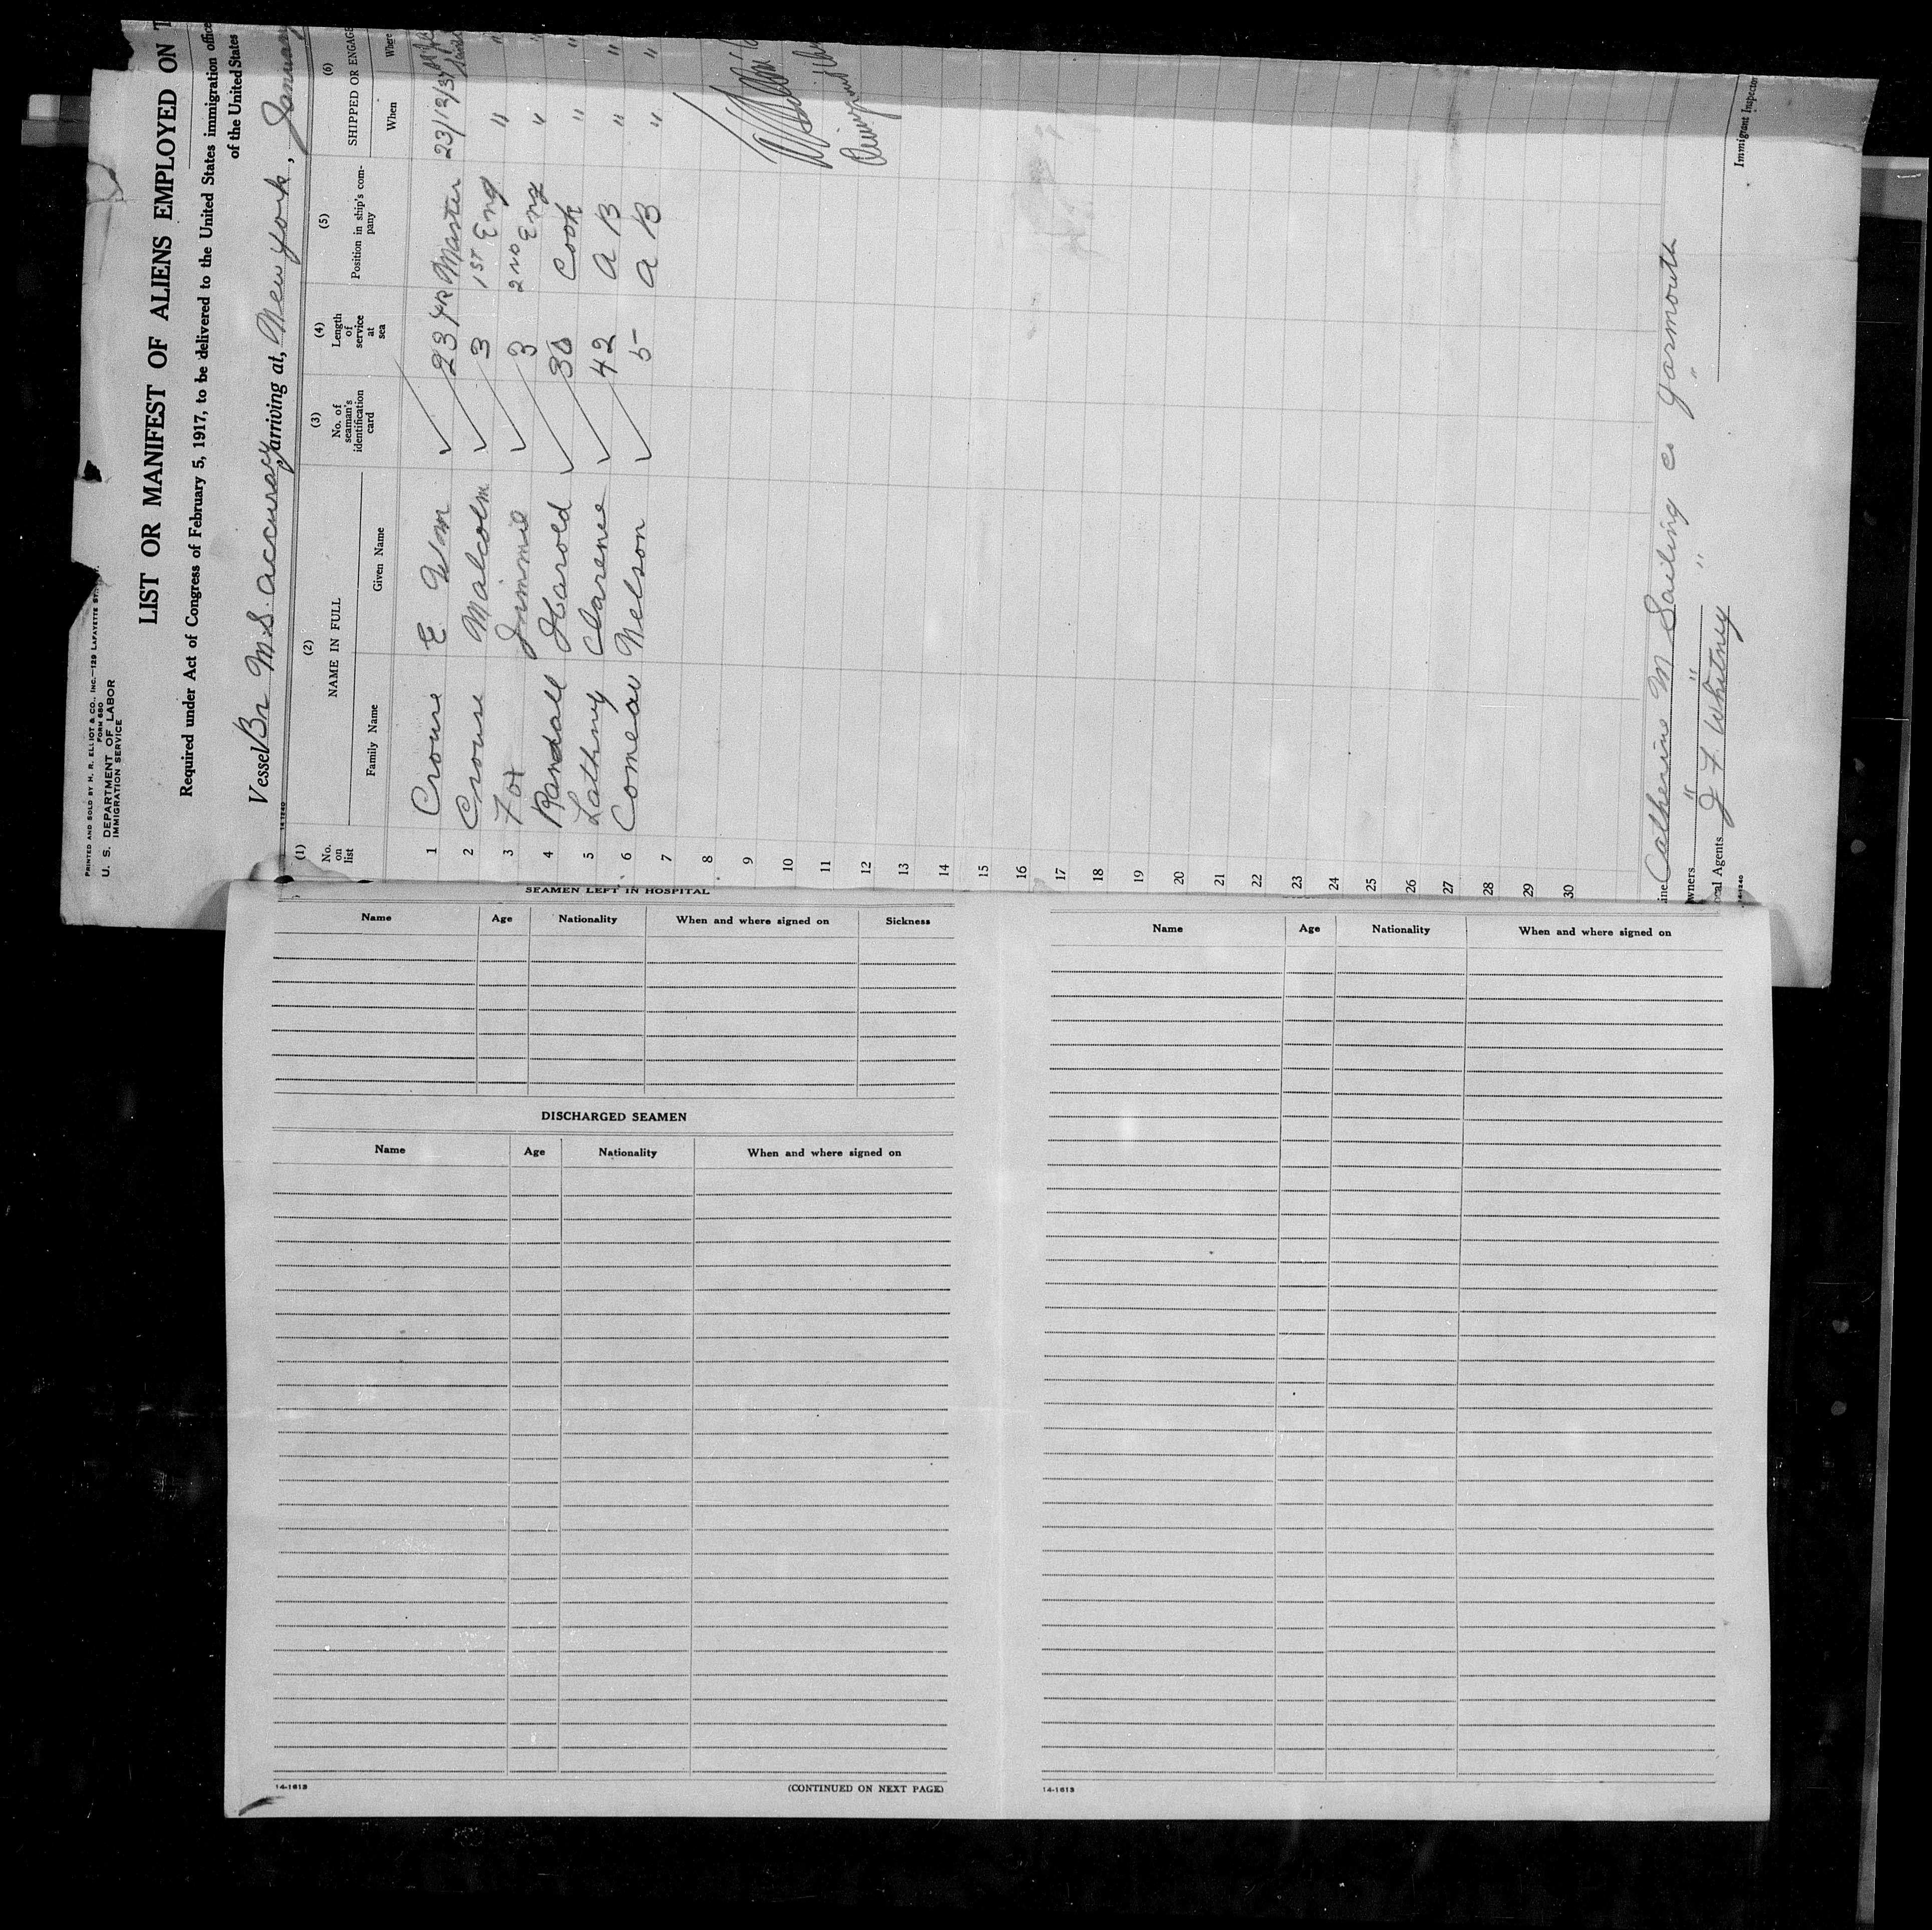 PRINTED AND SOLD BY H. R. ELLIOT & CO., INC.—129 LAFAYETTE
FORM 680
U. S. DEPARTMENT OF LABOR
IMMIGRATION SERVICE
LIST OR MANIFEST OF ALIENS EMPLOYED ON
Required under Act of Congress of February 5, 1917, to be delivered to the United States immigration
of the United States
Vessel Br M.S. Accuracy, arriving at, New York, January
14-1240
(1) (2) (3) (4) (5) (6)
No. on list NAME IN FULL No. of seaman's identification card Length of service at sea Position in ship's company SHIPPED OR ENGAGE
Family Name Given Name When Where
1 Crouse E. Wm 23 YR Master 23/12/37
2 Crouse Malcolm 3 1ST Eng " "
3 Fox Jimmie 3 2ND Eng " "
4 Randall Harold 30 Cook " "
5 Lathny Clarence 42 A B " "
6 Comeau Nelson 5 A B " "
7
8
9
10
11
12
13
14
15
16
17
18
19
20
21
22
23
24
25
26
27
28
29
30
ine Catherine M Sailing Co Yarmouth
wners " " " "
Agents J F Whitney
14-1240
Immigrant Inspector
SEAMEN LEFT IN HOSPITAL
Name Age Nationality When and where signed on Sickness
DISCHARGED SEAMEN
Name Age Nationality When and where signed on
14-1613
(CONTINUED ON NEXT PAGE)
Name Age Nationality When and where signed on
14-1613